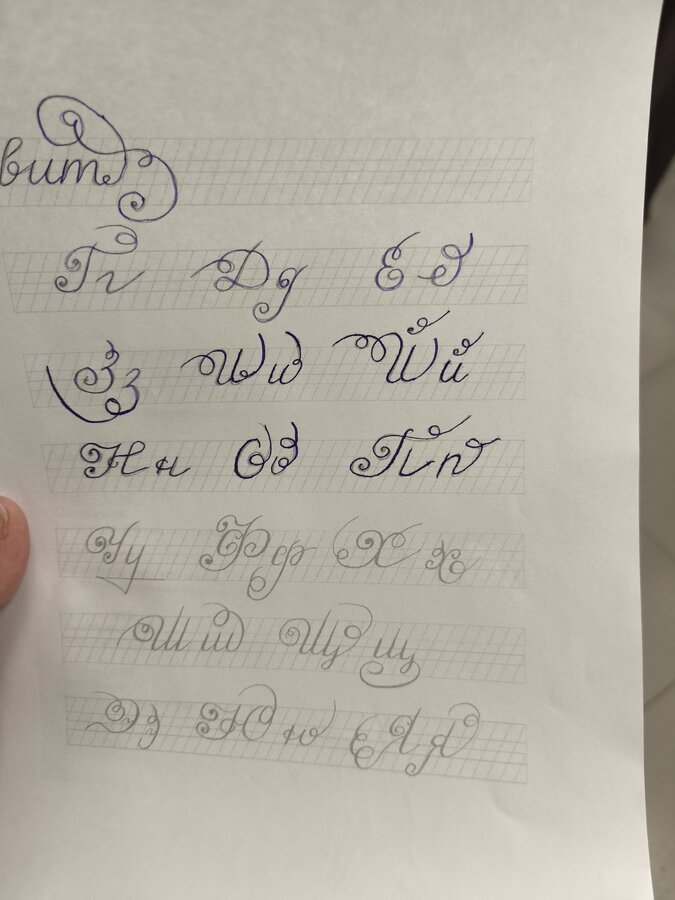 вит
Гг Дд Ее
Зз Ии Йй
Нн Оо Пп
Уу Фф Хх
Шш Щщ
Ээ Юю Яя